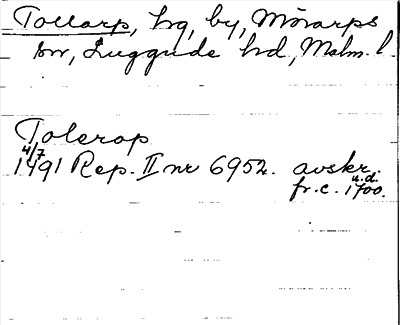 Tollarp, hg, by, Mörarps
sn, Luggude hd, Malm. l.
Tolerop
4/7
1491 Rep. II nr 6952. avskr. u.d.
fr. c. 1700.